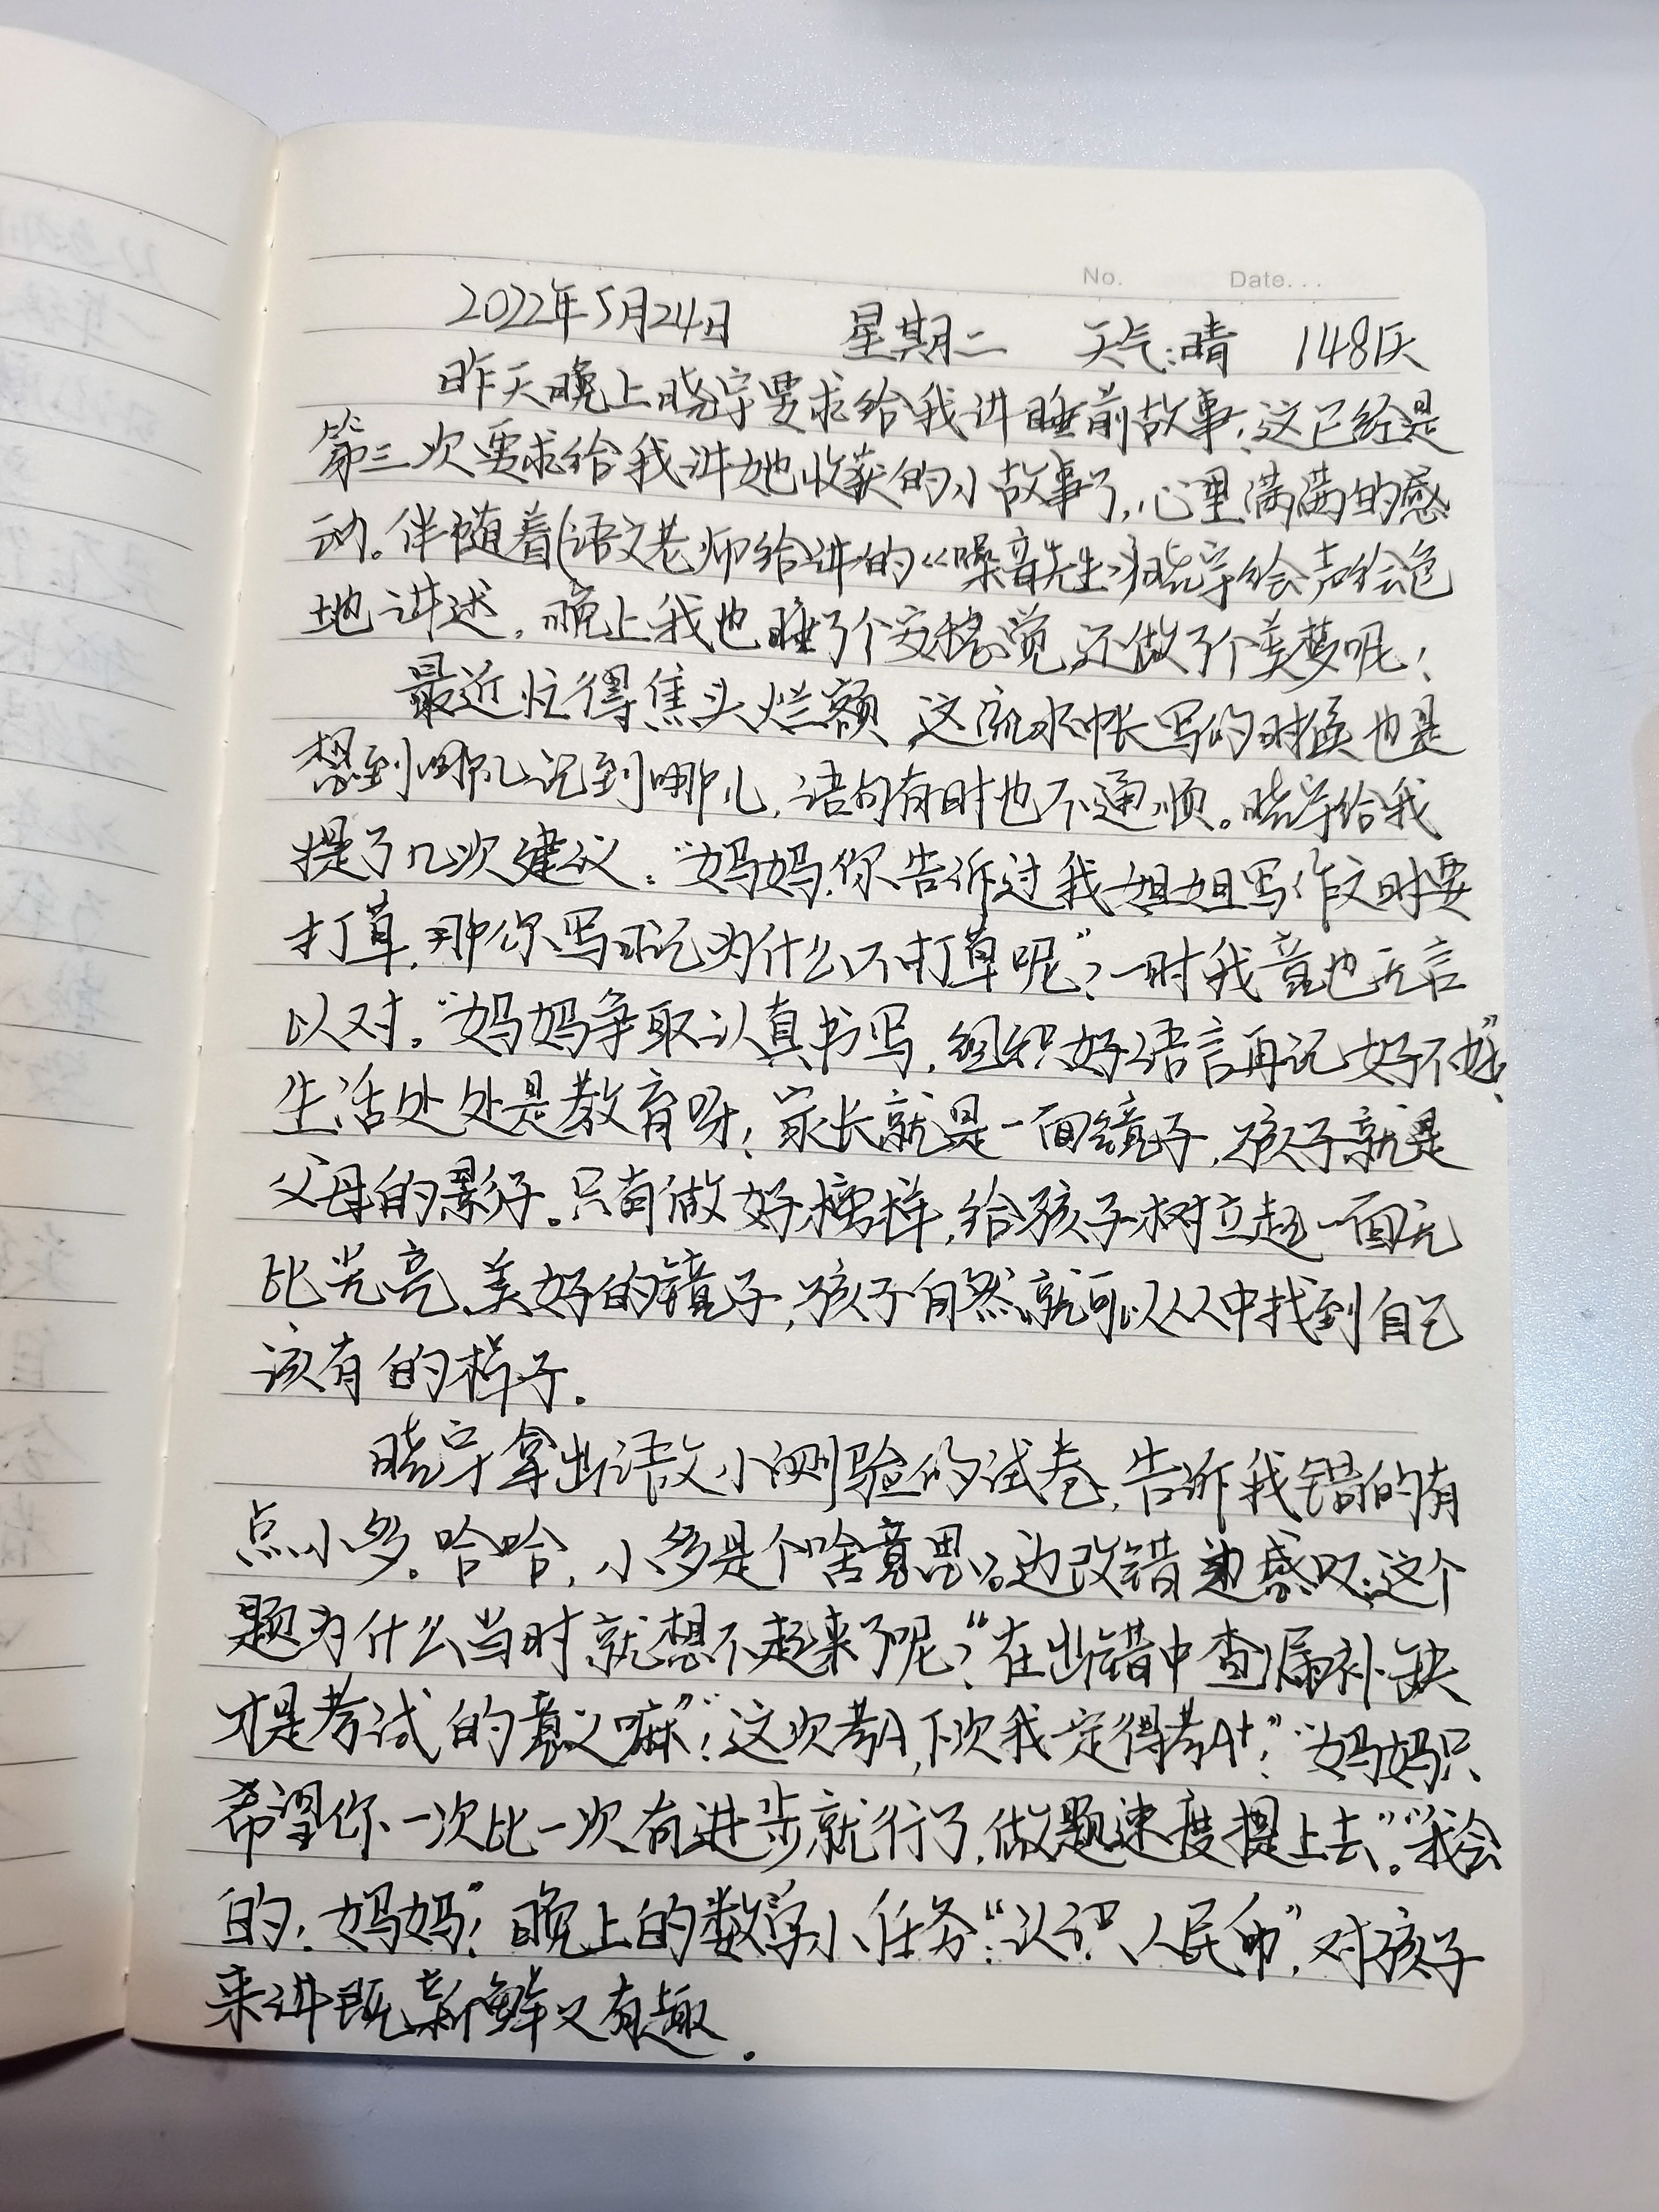 No.   Date...
2022年5月24日 星期二 天气:晴 148天
昨天晚上晓宇要求给我讲睡前故事,这已经是
第三次要求给我讲她收获的小故事了,心里满满的感
动。伴随着(语文老师给讲的《噪音先生》)晓宇绘声绘色
地讲述,晚上我也睡了个安稳觉,还做了个美梦呢!
最近忙得焦头烂额,这流水帐写的时候也是
想到哪儿记到哪儿,语句有时也不通顺。晓宇给我
提了几次建议:“妈妈,你告诉过我姐姐写作文时要
打草,那你写日记为什么不打草呢”?一时我竟也无言
以对。“妈妈争取认真书写,组织好语言再记好不好”
生活处处是教育呀!家长就是一面镜子,孩子就是
父母的影子。只有做好榜样,给孩子树立起一面无
比光亮、美好的镜子,孩子自然就可以从中找到自己
该有的样子。
晓宇拿出语文小测验的试卷,告诉我错的有
点小多。哈哈,小多是个啥意思。边改错边感叹:这个
题为什么当时就想不起来了呢?“在出错中查漏补缺
才是考试的意义嘛”!“这次考A,下次我一定得考A+!”“妈妈只
希望你一次比一次有进步就行了,做题速度提上去。”“我会
的!妈妈”!晚上的数学小任务:“认识人民币”,对孩子
来讲既新鲜又有趣.